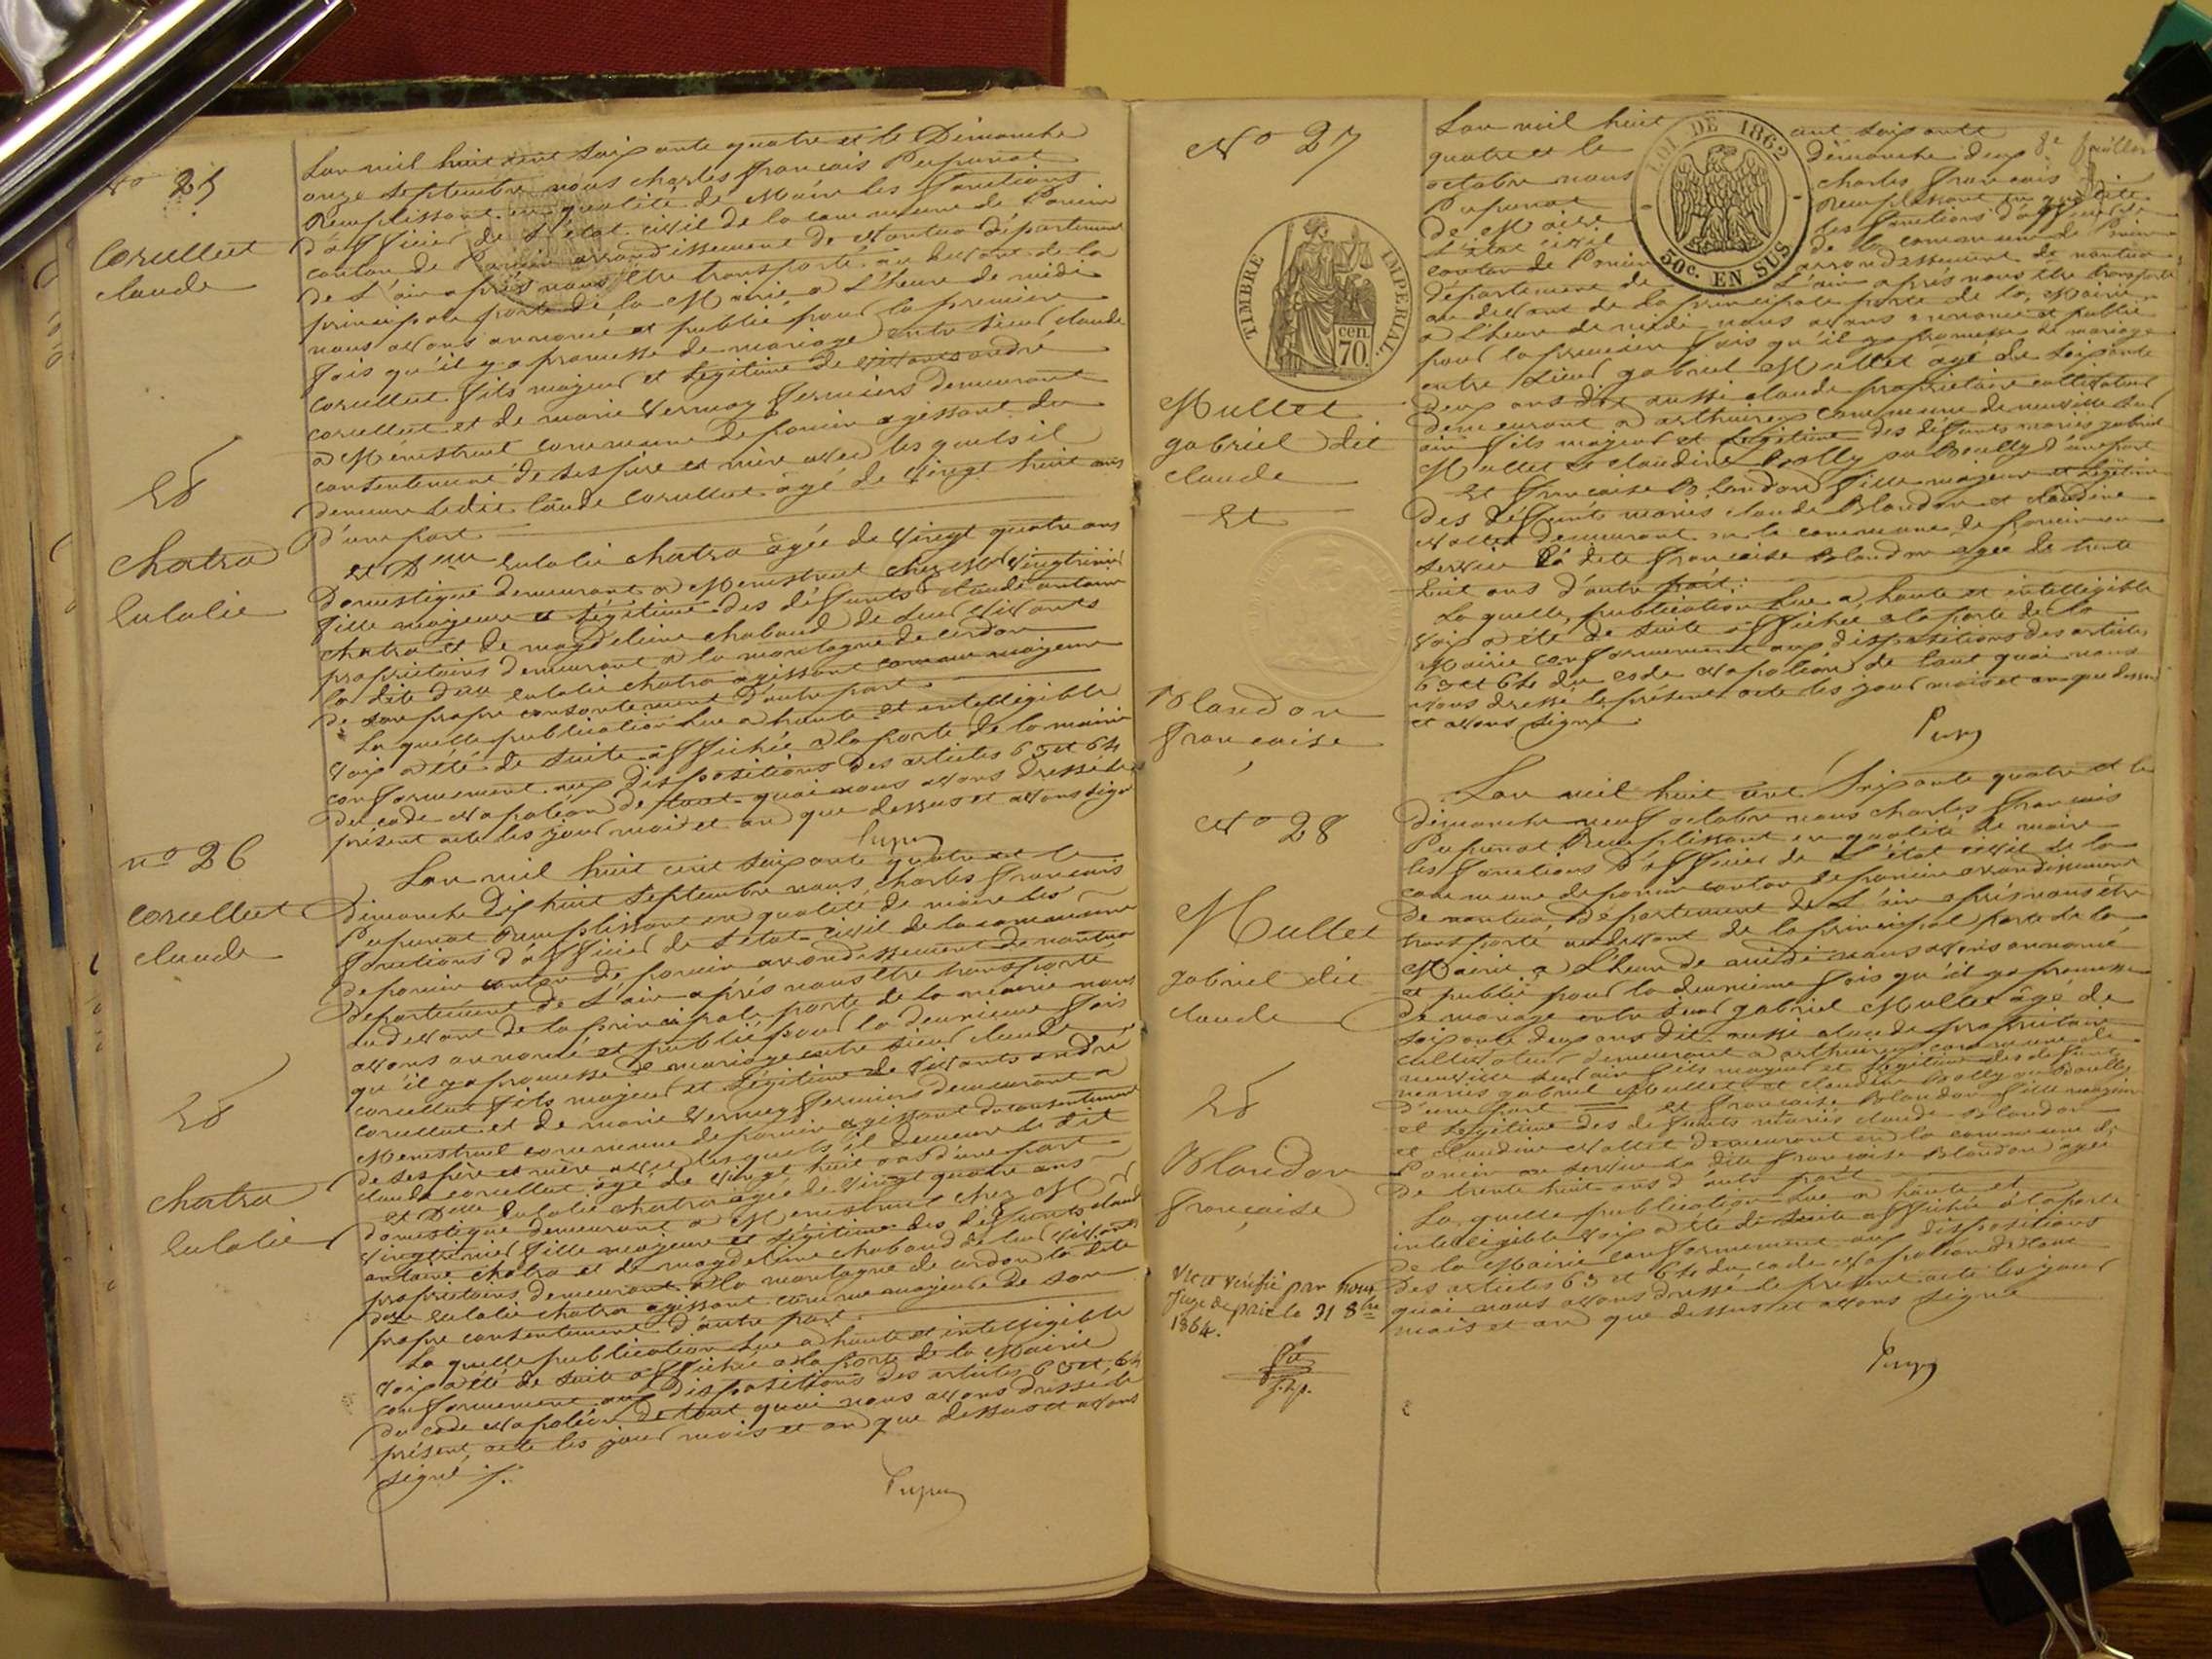 No 25
Corcellut
claude
Et
Chatra
Eulalie
L'an mil huit cent soixante quatre et le Dimanche
onze septembre nous charles françois Pupunat
Remplissant en qualité de Maire les fonctions
d'officier de l'état civil de la commune de Poncin
canton de Poncin arrondissement de Nantua département
de L'ain après nous être transporté au devant de la
principale porte de la Mairie a L'heure de midi
nous avons annoncé et publié pour la première
fois qu'il y a promesse de mariage entre sieur claude
corcellut fils majeur et légitime de vivants andré
corcellut et de marie Vernay fermiers demeurant
a Ménestruel commune de poncin agissant du
consentement de ses père et mère avec lesquels il
demeure le dit claude corcellut agé de vingt huit ans
d'une part
et Delle Eulalie chatra âgée de vingt quatre ans
Domestique demeurant a Menestruel chez Mr Vingtrinier
fille majeure et légitime des défunts claude antoine
chatra et de magdeleine chabaud de leur vivants
propriétaires demeurant a la montagne de cerdon
la dite Delle Eulalie chatra agissant comme majeure
de son propre consentement d'autre part
La quelle publication lue a haute et intelligible
voix a été de suite affichée a la porte de la mairie
conformement aux dispositions des articles 63 et 64
du code Napoléon de tout quoi nous avons dressé le
présent acte les jour mois et an que dessus et avons signé
Pupu
no 26
corcellut
claude
Et
chatra
Eulalie
L'an mil huit cent soixante quatre et le
Dimanche Dix huit septembre nous charles françois
Pupunat Remplissant en qualité de maire les
fonctions d'officier de L'état civil de la commune
de poncin canton de poncin arrondissement de nantua
département de L'ain après nous être transporté
au devant de la principale porte de la mairie nous
avons annoncé et publié pour la deuxieme fois
qu'il y a promesse de mariage entre sieur claude
corcellut fils majeur et légitime de vivants andré
corcellut et de marie Vernay fermiers demeurant a
Menestruel commune de poncin agissant du consentement
de ses père et mère avec lesquels il demeure le dit
claude corcellut agé de vingt huit ans d'une part
et Delle Eulalie chatra agée de vingt quatre ans
domestique demeurant a Menestruel chez Mr
Vingtrinier fille majeure et légitime des défunts claude
antoine chatra et de magdeleine chabaud de leur vivants
propriétaires demeurant a la montagne de cerdon la dite
Delle Eulalie chatra agissant comme majeure de son
propre consentement d'autre part
La quelle publication lue a haute et intelligible
voix a été de suite affichée a la porte de la Mairie
conformement aux dispositions des articles 63 et 64
du code Napoléon de tout quoi nous avons dressé le
présent acte les jour mois et an que dessus et avons
signé
Pupu
No 27
TIMBRE IMPERIAL.
cen
70.
LOI DE 1862
50c. EN SUS
Mullet
gabriel dit
claude
Et
Blandon
françoise
8e feuillet
L'an mil huit cent soixante
quatre et le dimanche deux
octobre nous charles françois
Pupunat Remplissant en qualité
de Maire les fonctions d'officier de
L'état civil de la commune de Poncin
canton de Poncin arrondissement de nantua
département de L'ain après nous être transporté
au devant de la principale porte de la Mairie
a L'heure de midi nous avons annoncé et publié
pour la premiere fois qu'il y a promesse de mariage
entre sieur gabriel Mullet âgé de soixante
deux ans dit aussi claude propriétaire cultivateur
demeurant a arthuireux commune de neuville sur
ain fils majeur et Légitime des défunts mariés gabriel
Mullet et claudine Bolly ou Boully d'une part
Et françoise Blandon fille majeure et légitime
des défunts mariés claude Blandon et claudine
demeurant en la commune de poncin en
service la dite françoise Blandon agée de trente
huit ans d'autre part.
La quelle publication lue a haute et intelligible
voix a été de suite affichée a la porte de la
Mairie conformement aux dispositions des articles
63 et 64 du code Napoléon de tout quoi nous
avons dressé le présent acte les jour mois et an que dessus
et avons signé
Pupu
No 28
Mullet
gabriel dit
claude
Et
Blandon
françoise
L'an mil huit cent soixante quatre et le
dimanche neuf octobre nous charles françois
Pupunat Remplissant en qualité de maire
les fonctions d'officier de L'état civil de la
commune de poncin canton de poncin arrondissement
de nantua département de L'ain après nous être
transporté au devant de la principal porte de la
Mairie a L'heure de midi nous avons annoncé
et publié pour la deuxieme fois qu'il y a promesse
de mariage entre sieur gabriel Mullet âgé de
soixante deux ans dit aussi claude propriétaire
cultivateur demeurant a arthuireux commune de
neuville sur ain fils majeur et légitime des defunts
mariés gabriel Mullet et claudine Bolly ou Boully
d'une part et françoise Blandon fille majeure
et légitime des defunts mariés claude Blandon
et claudine demeurant en la commune de
Poncin en service la dite françoise Blandon agée
de trente huit ans d'autre part
La quelle publication lue a haute et
intelligible voix a été de suite affichée a la porte
de la Mairie conformement aux dispositions
des articles 63 et 64 du code Napoléon de tout
quoi nous avons dressé le présent acte les jour
mois et an que dessus et avons signé
Pupu
Vu et vérifié par Nous
Juge de paix le 31 8bre
1864.